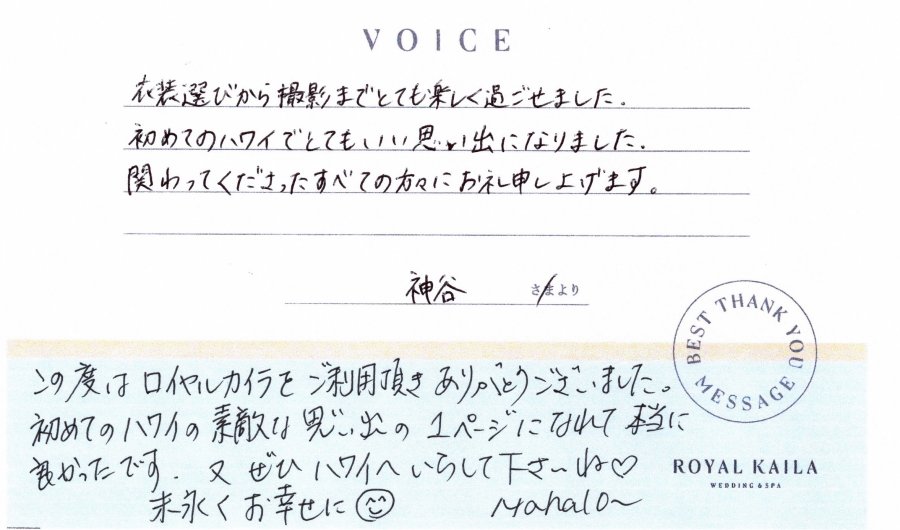 VOICE
衣装選びから撮影までとても楽しく過ごせました.
初めてのハワイでとてもいい思い出になりました.
関わってくださったすべての方々にお礼申し上げます。
神谷 さまより
BEST THANK YOU MESSAGE
この度はロイヤルカイラをご利用頂きありがとうございました。
初めてのハワイの素敵な思い出の1ページになれて本当に
良かったです. 又ぜひハワイへいらして下さ〜ね♡
ROYAL KAILA
WEDDING & SPA
末永くお幸せに☺ Mahalo〜